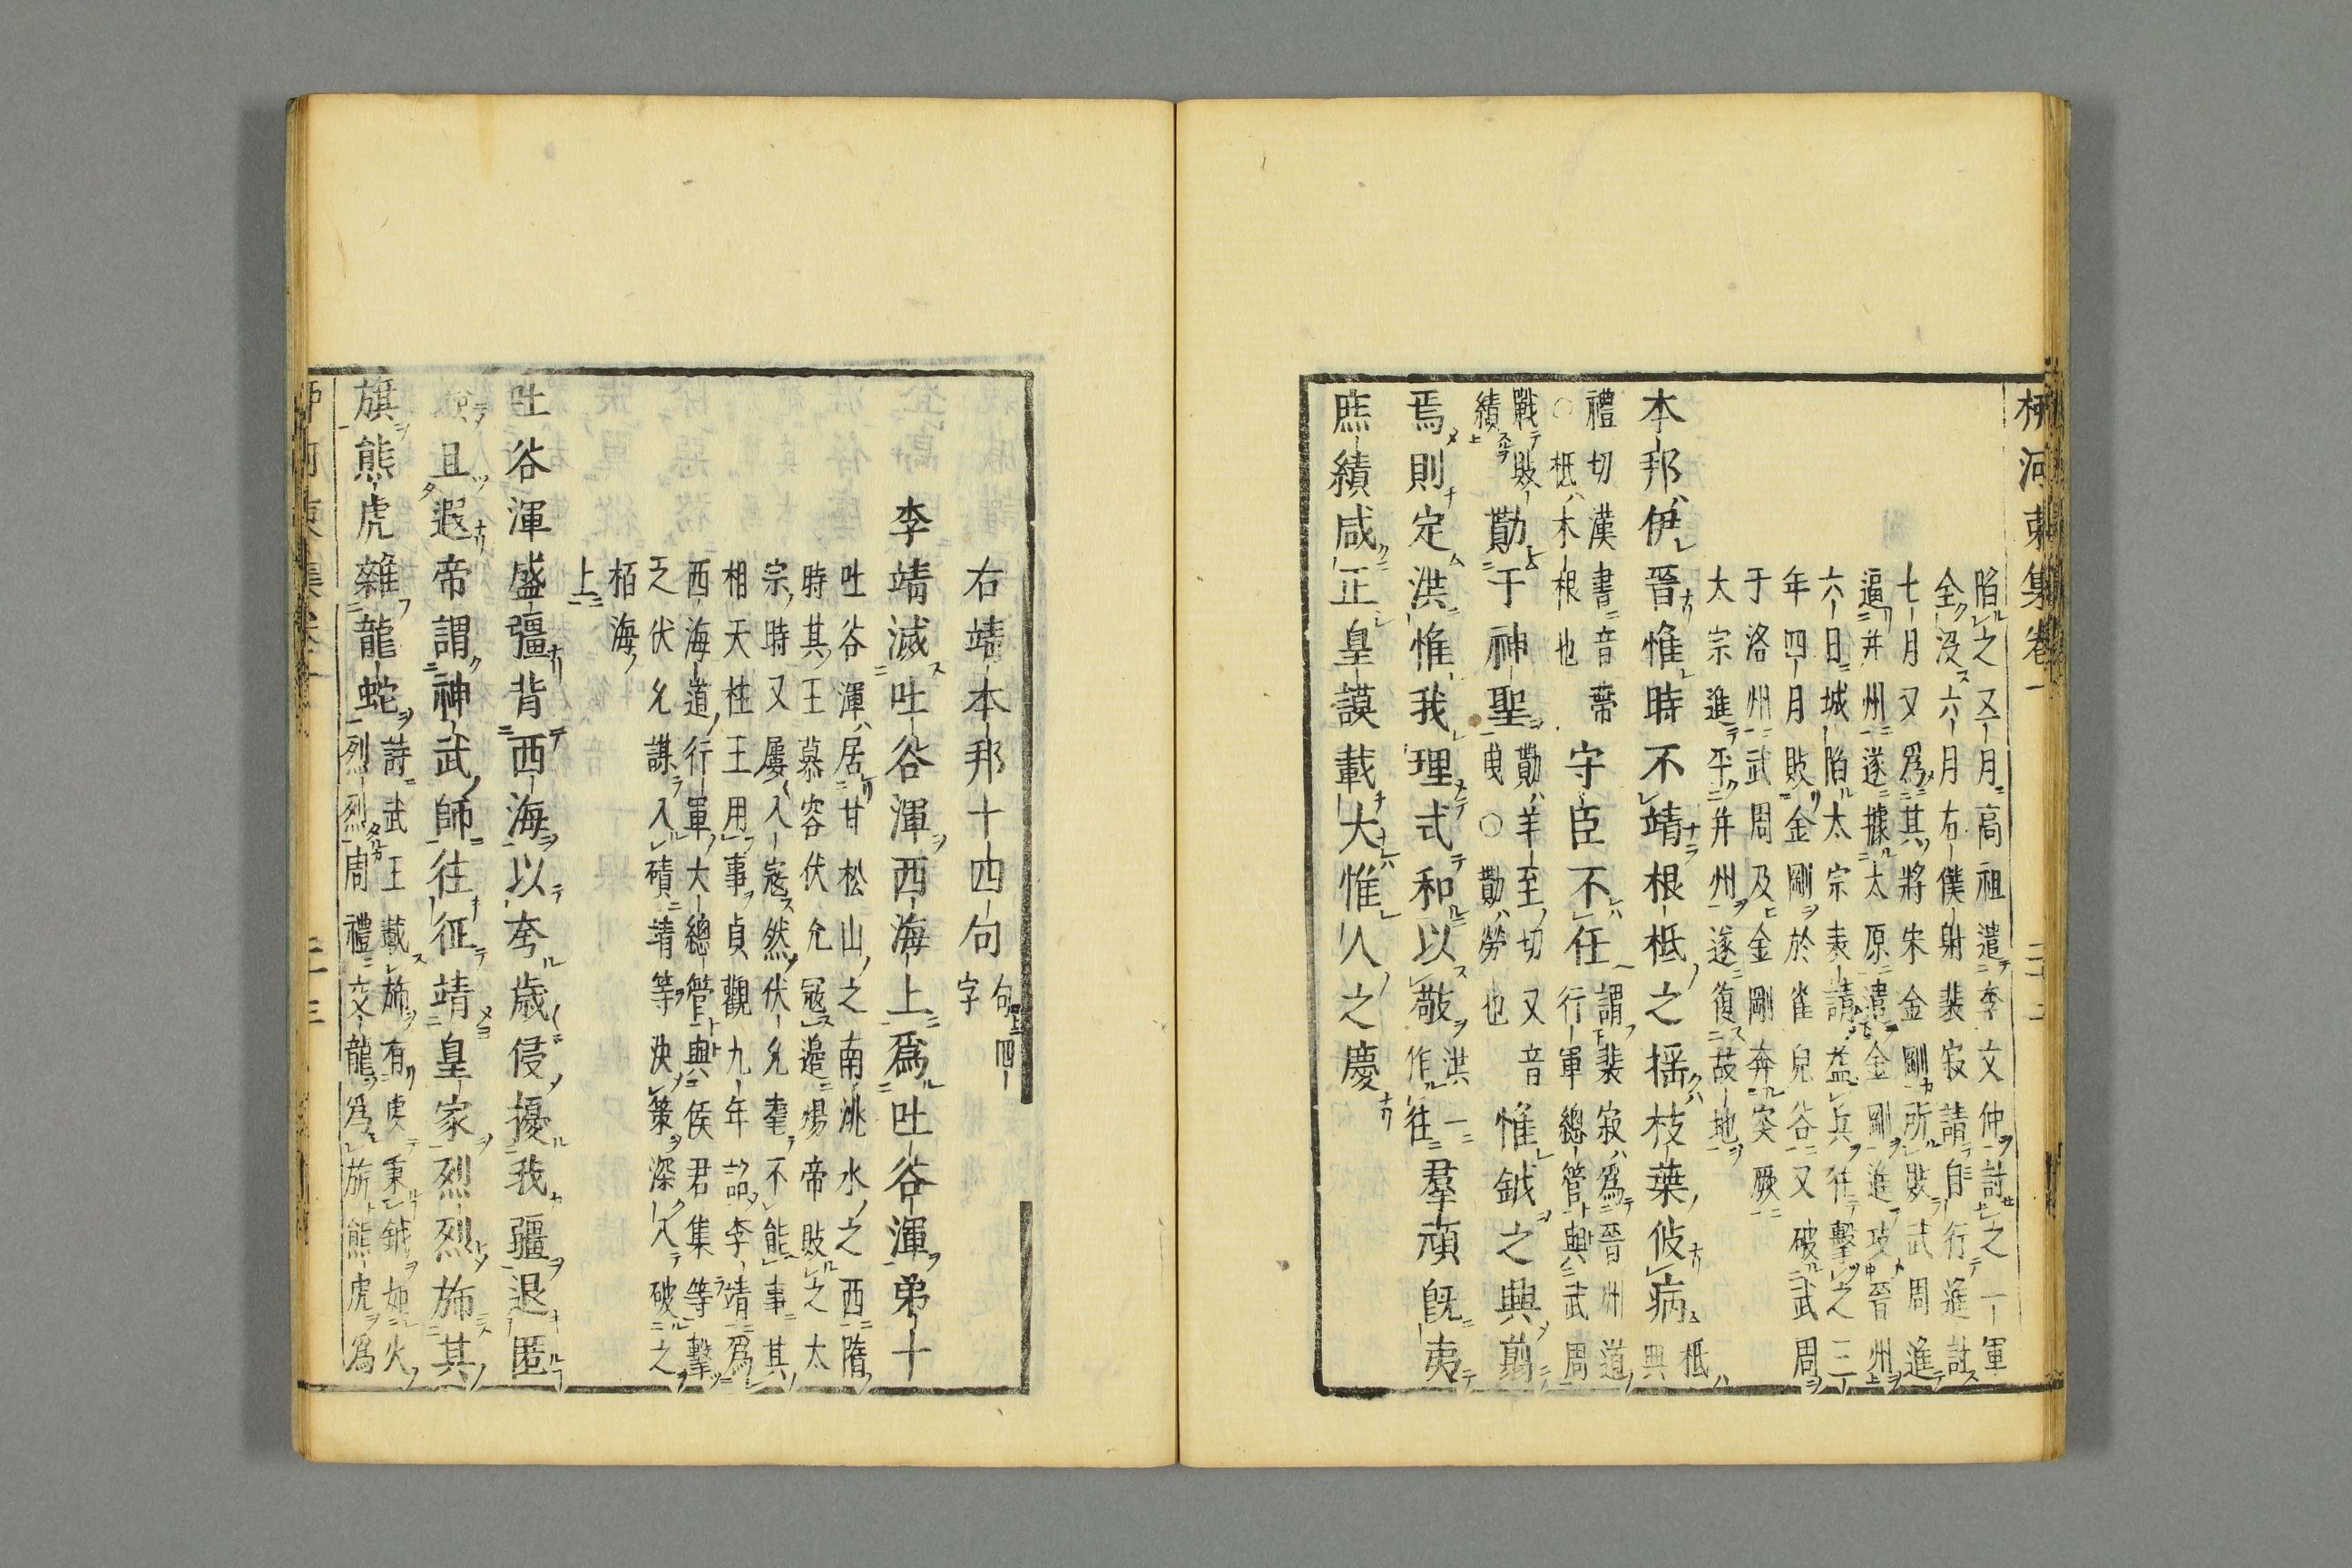 柳河東集卷一
陷之又月高祖遣李文仲討之一軍
全没六月右僕射裴寂請自行進討
七月又爲其將宋金剛所敗武周進
逼并州遂據太原遣金剛進攻晉州
六日城陷太宗表請益兵往擊之三
年四月敗金剛於雀兒谷又破武周
于洛州武周及金剛奔突厥
太宗進平并州遂復故地
本邦伊晉惟時不靖根柢之揺枝葉攸病柢典
禮切漢書音蒂
○柢木根也
守臣不任謂裴寂爲晉州道
行軍總管與武周
戰敗
績
勩于神聖勩羊至切又音
曳○勩勞也
惟鉞之興翦
焉則定洪惟我理式和以敬洪一
作往
羣頑旣夷
庶績咸正皇謨載大惟人之慶
右靖本邦十四句句四
字
李靖滅吐谷渾西海上爲吐谷渾弟十
吐谷渾居甘松山之南洮水之西隋
時其王慕容伏允寇邉煬帝敗之太
宗時又屢入寇然伏允耄不能事其
相天柱王用事貞觀九年詔李靖爲
西海道行軍大總管與侯君集等擊
之伏允謀入磧靖等決策深入破之
栢海
上
吐谷渾盛彊背西海以夸歳侵擾我疆退匿
險且遐帝謂神武師往征靖皇家烈烈施其
旗熊虎雜龍蛇詩武王載斾有虔秉鉞如火
烈烈周禮交龍爲旂熊虎爲